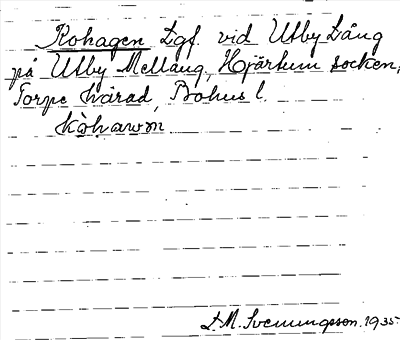 Kohagen Lgf. vid Utby Lång
på Utby Mellang, Hjärtum socken,
Torpe härad, Bohus l.
kòhawm
S.M. Svenungsson. 1935.